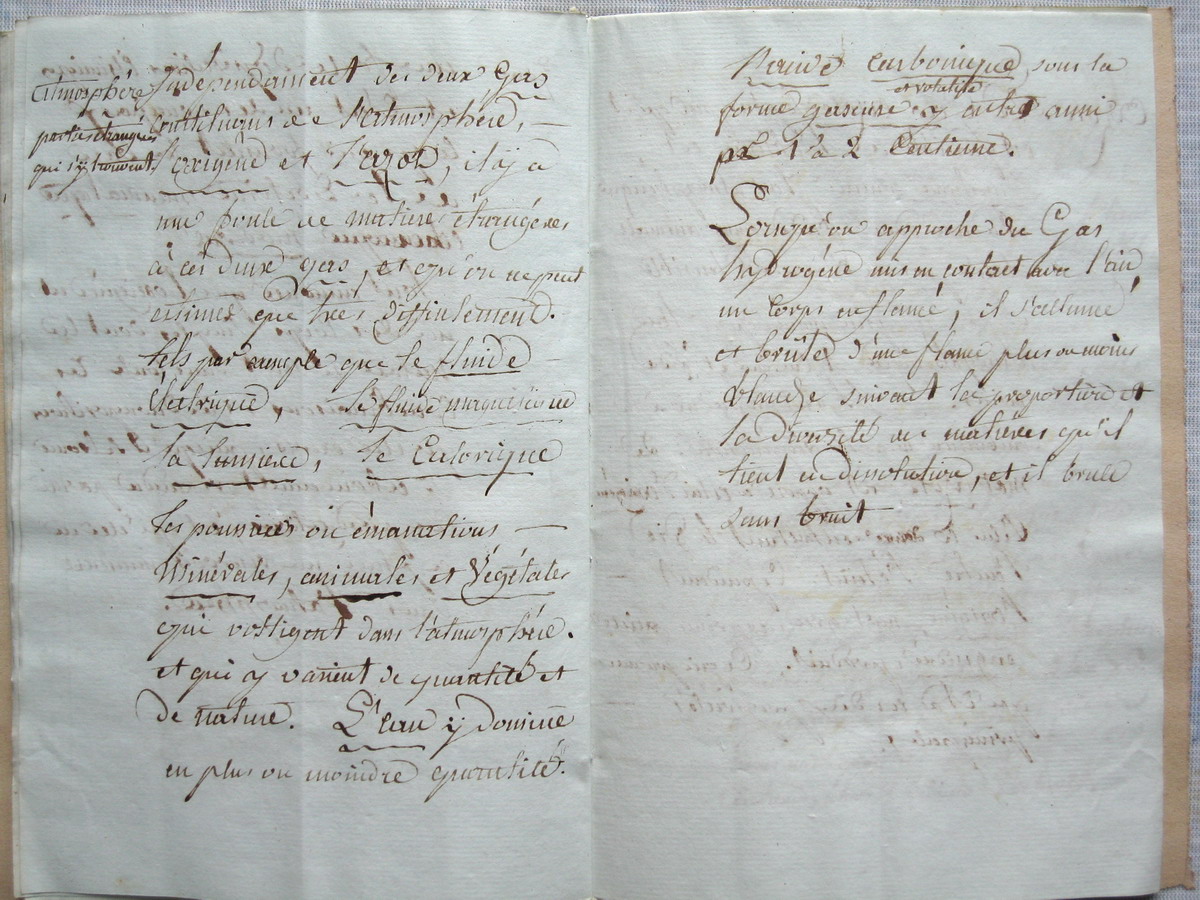 atmosphère
parties étrangères
qui s'y trouvent
Independament des deux Gas
constituans de l'atmosphère, —
l'oxigène et l'azot, il y a
une foule de matieres étrangères
à ces deux gas, et qu'on ne peut
que très difficilement.
tels par exemple que le fluide
électrique, le fluide magnetique
la lumiere, le Calorique
Les poussieres ou émanations —
Minérales, animales et Végétales
qui voltigent dans l'atmosphère.
et qui y varient de quantité et
de nature. L'eau y domine
en plus ou moindre quantité.
l'acide carbonique, sous la
et volatile
forme gaseuse y entre aussi
pr 1 à 2 Centieme.
Lorsqu'on approche du Gas
hydrogéne mis en contact avec l'air,
un corps enflamé, il s'allume
et brûle d'une flame plus ou moins
blanche suivant la proportion et
la diversité des matières qu'il
tient en dissolution, et il brule
sans bruit